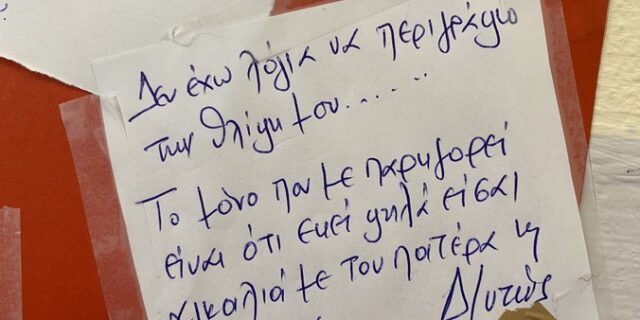 Δεν έχω λόγια να περιγράψω
την θλίψη μου......
Το μόνο που με παρηγορεί
είναι ότι εκεί ψηλά είσαι
αγκαλιά με τον πατέρα